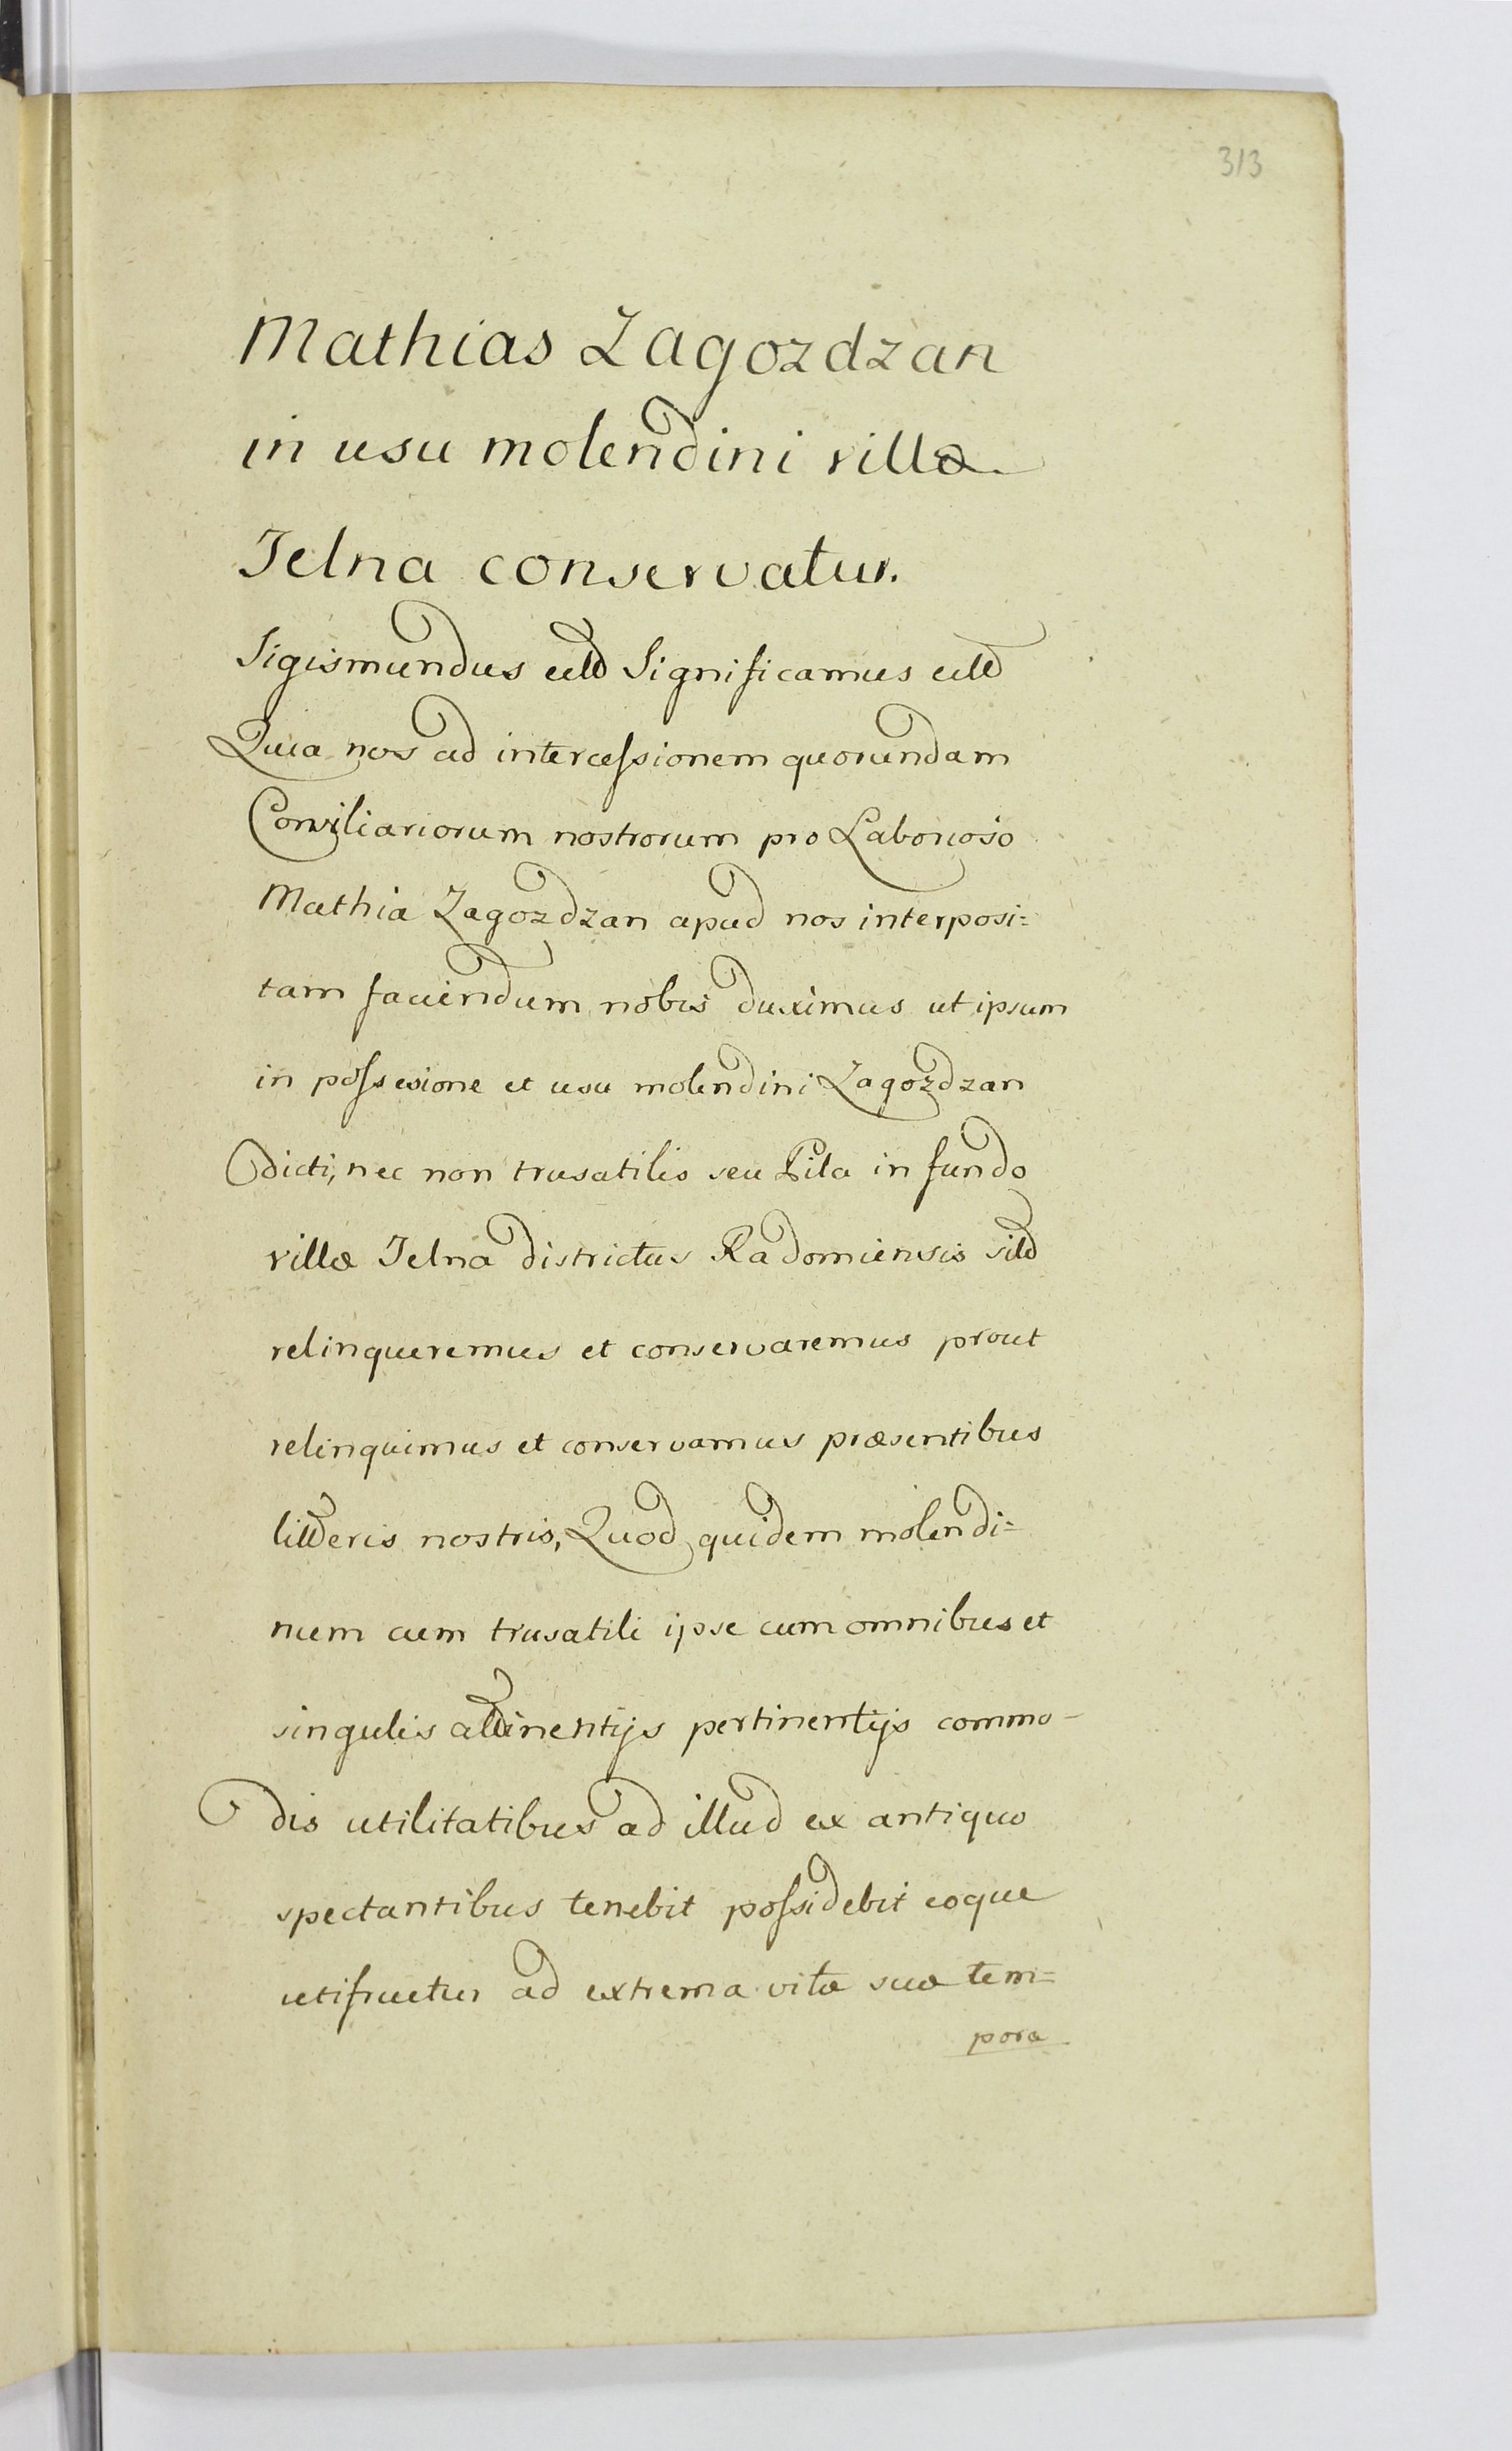 313
Mathias Zagozdzan
in usu molendini villæ
Jelna conservatur.
Sigismundus ett Significamus ett
Quia nos ad intercessionem quorundam
Consiliariorum nostrorum pro Laborioso
Mathia Zagozdzan apud nos interposi=
tam faciendum nobis duximus ut ipsum
in possesione et usu molendini Zagozdzan
dicti, nec non trusatilis seu Pila in fundo
villæ Jelna districtus Radomiensis siti
relinqueremus et conservaremus prout
relinquimus et conservamus præsentibus
litteris nostris, Quod quidem molendi=
num cum trusatili ipse cum omnibus et
singulis attinentijs pertinentijs commo-
dis utilitatibus ad illud ex antiquo
spectantibus tenebit possidebit eoque
utifruetur ad extrema vitæ suæ tem=
pora